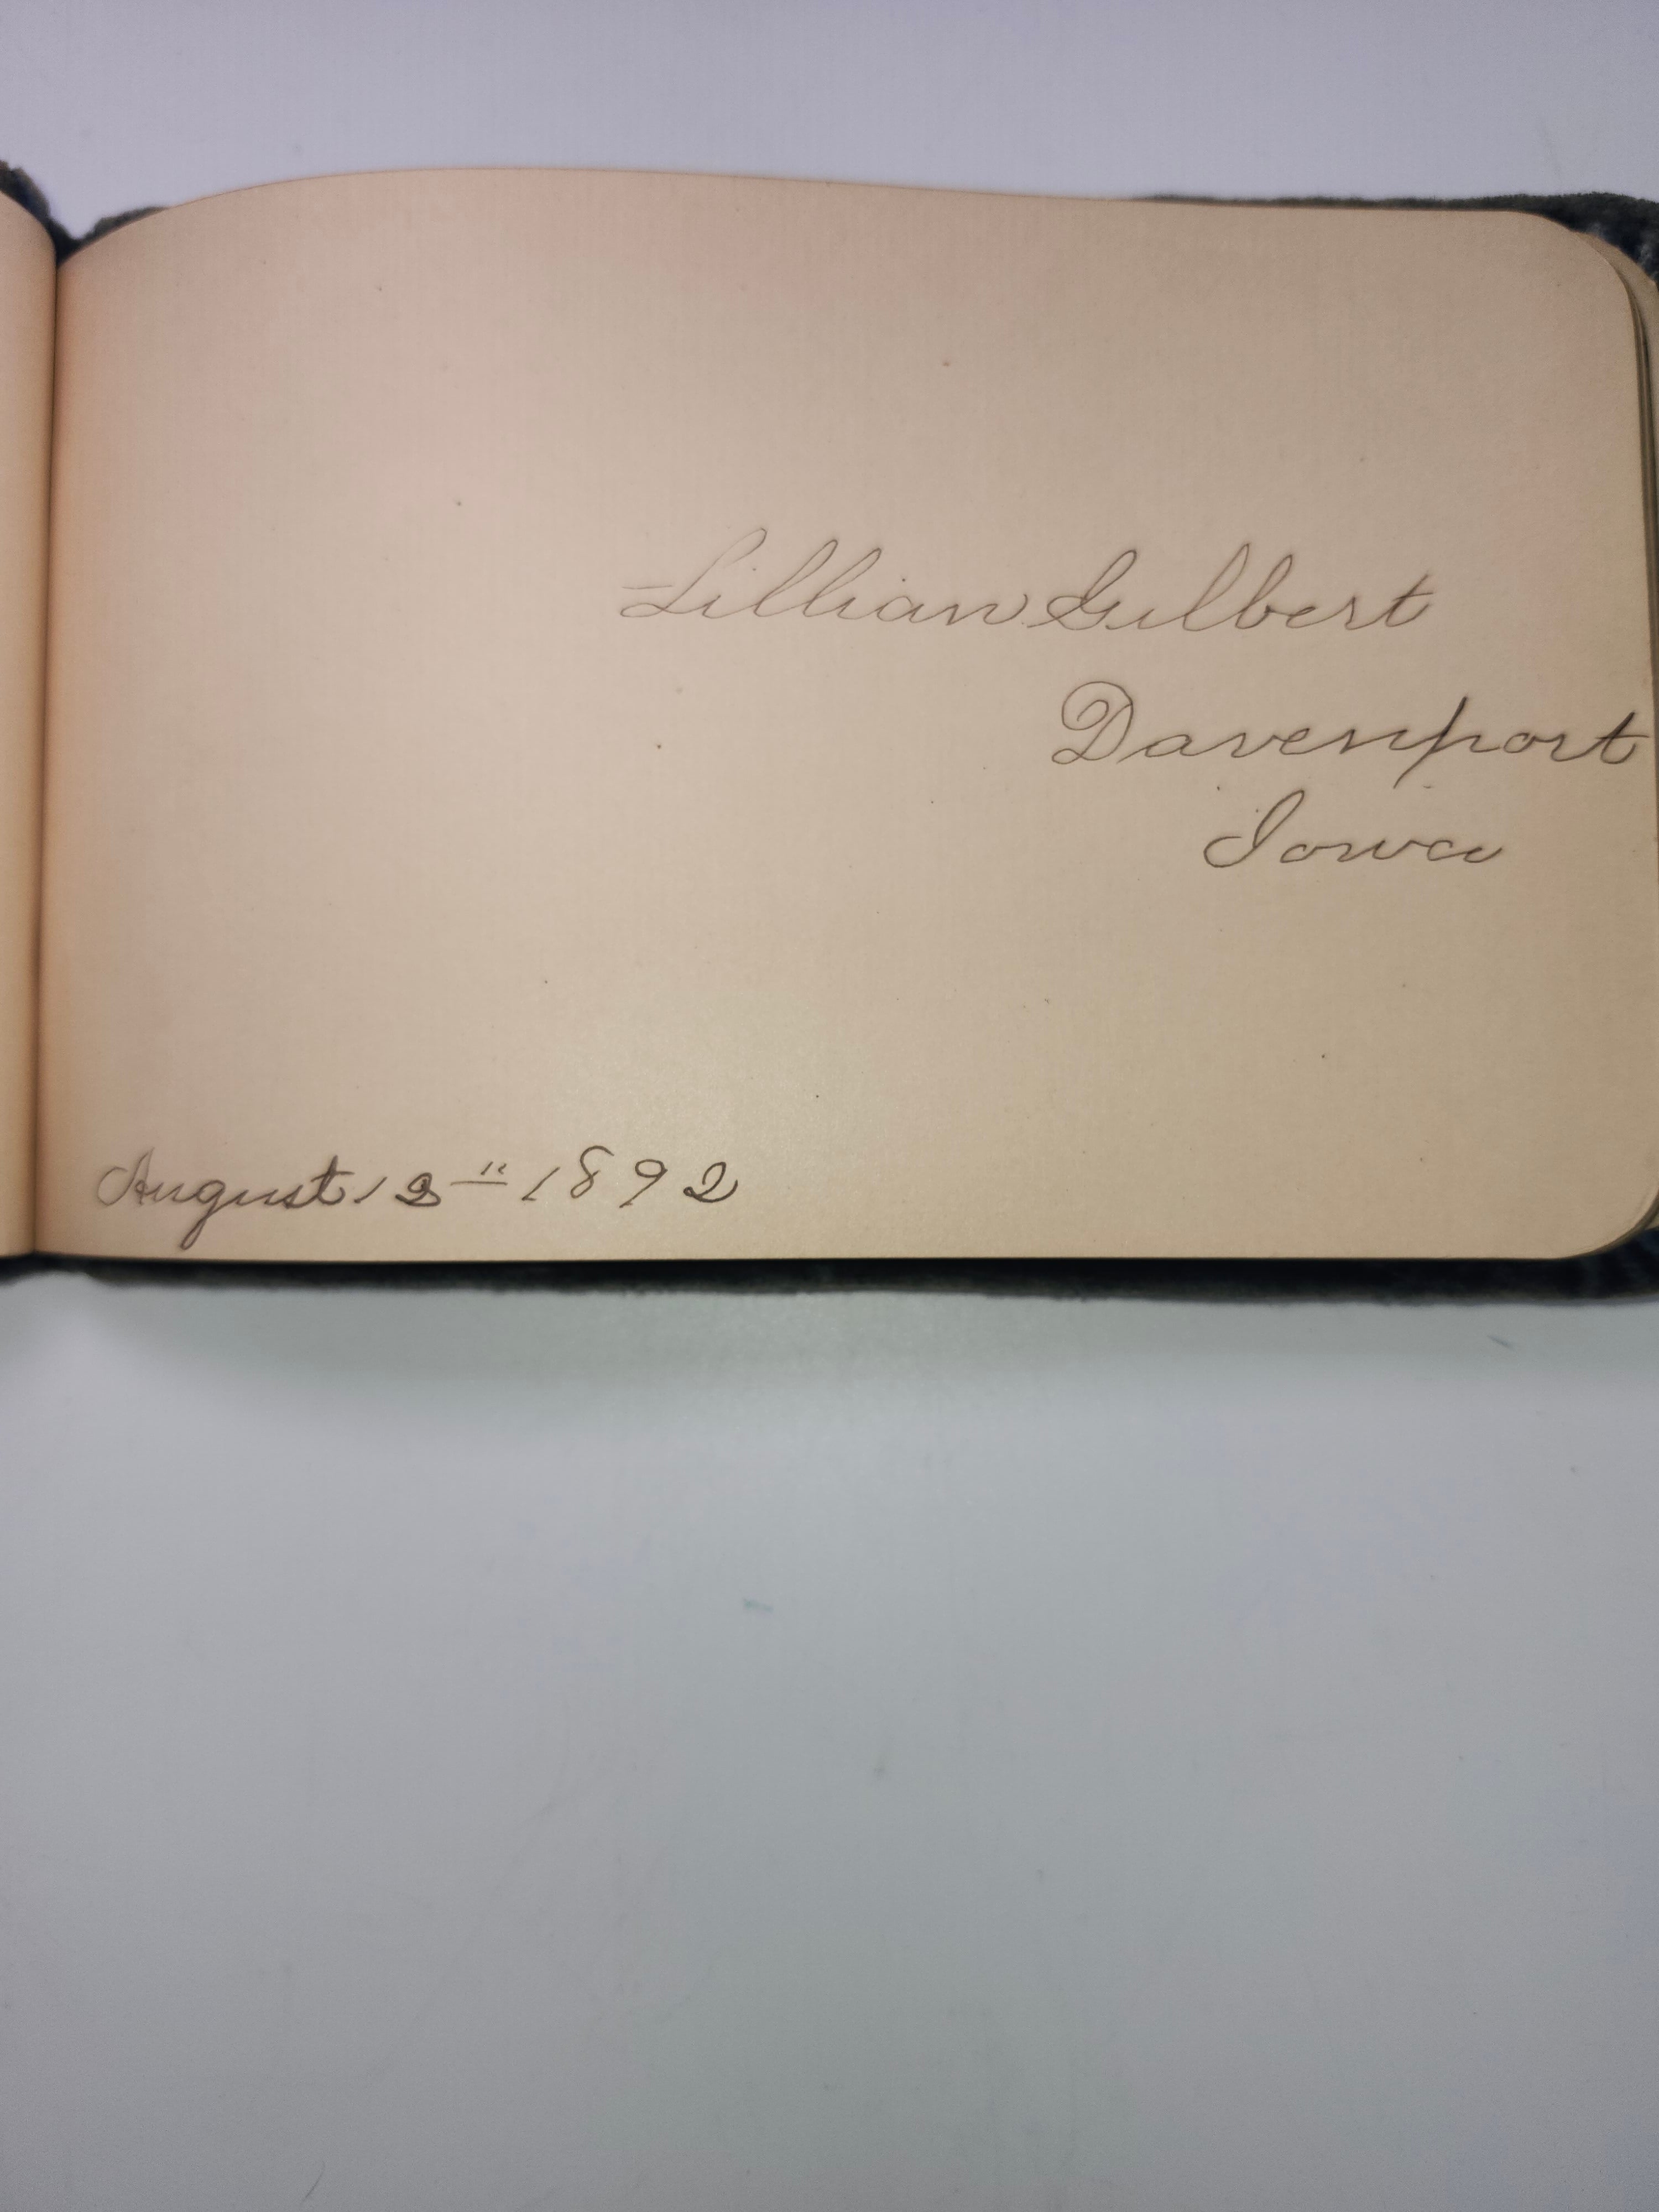 Lillian Gilbert
Davenport
Iowa
August 12" 1892